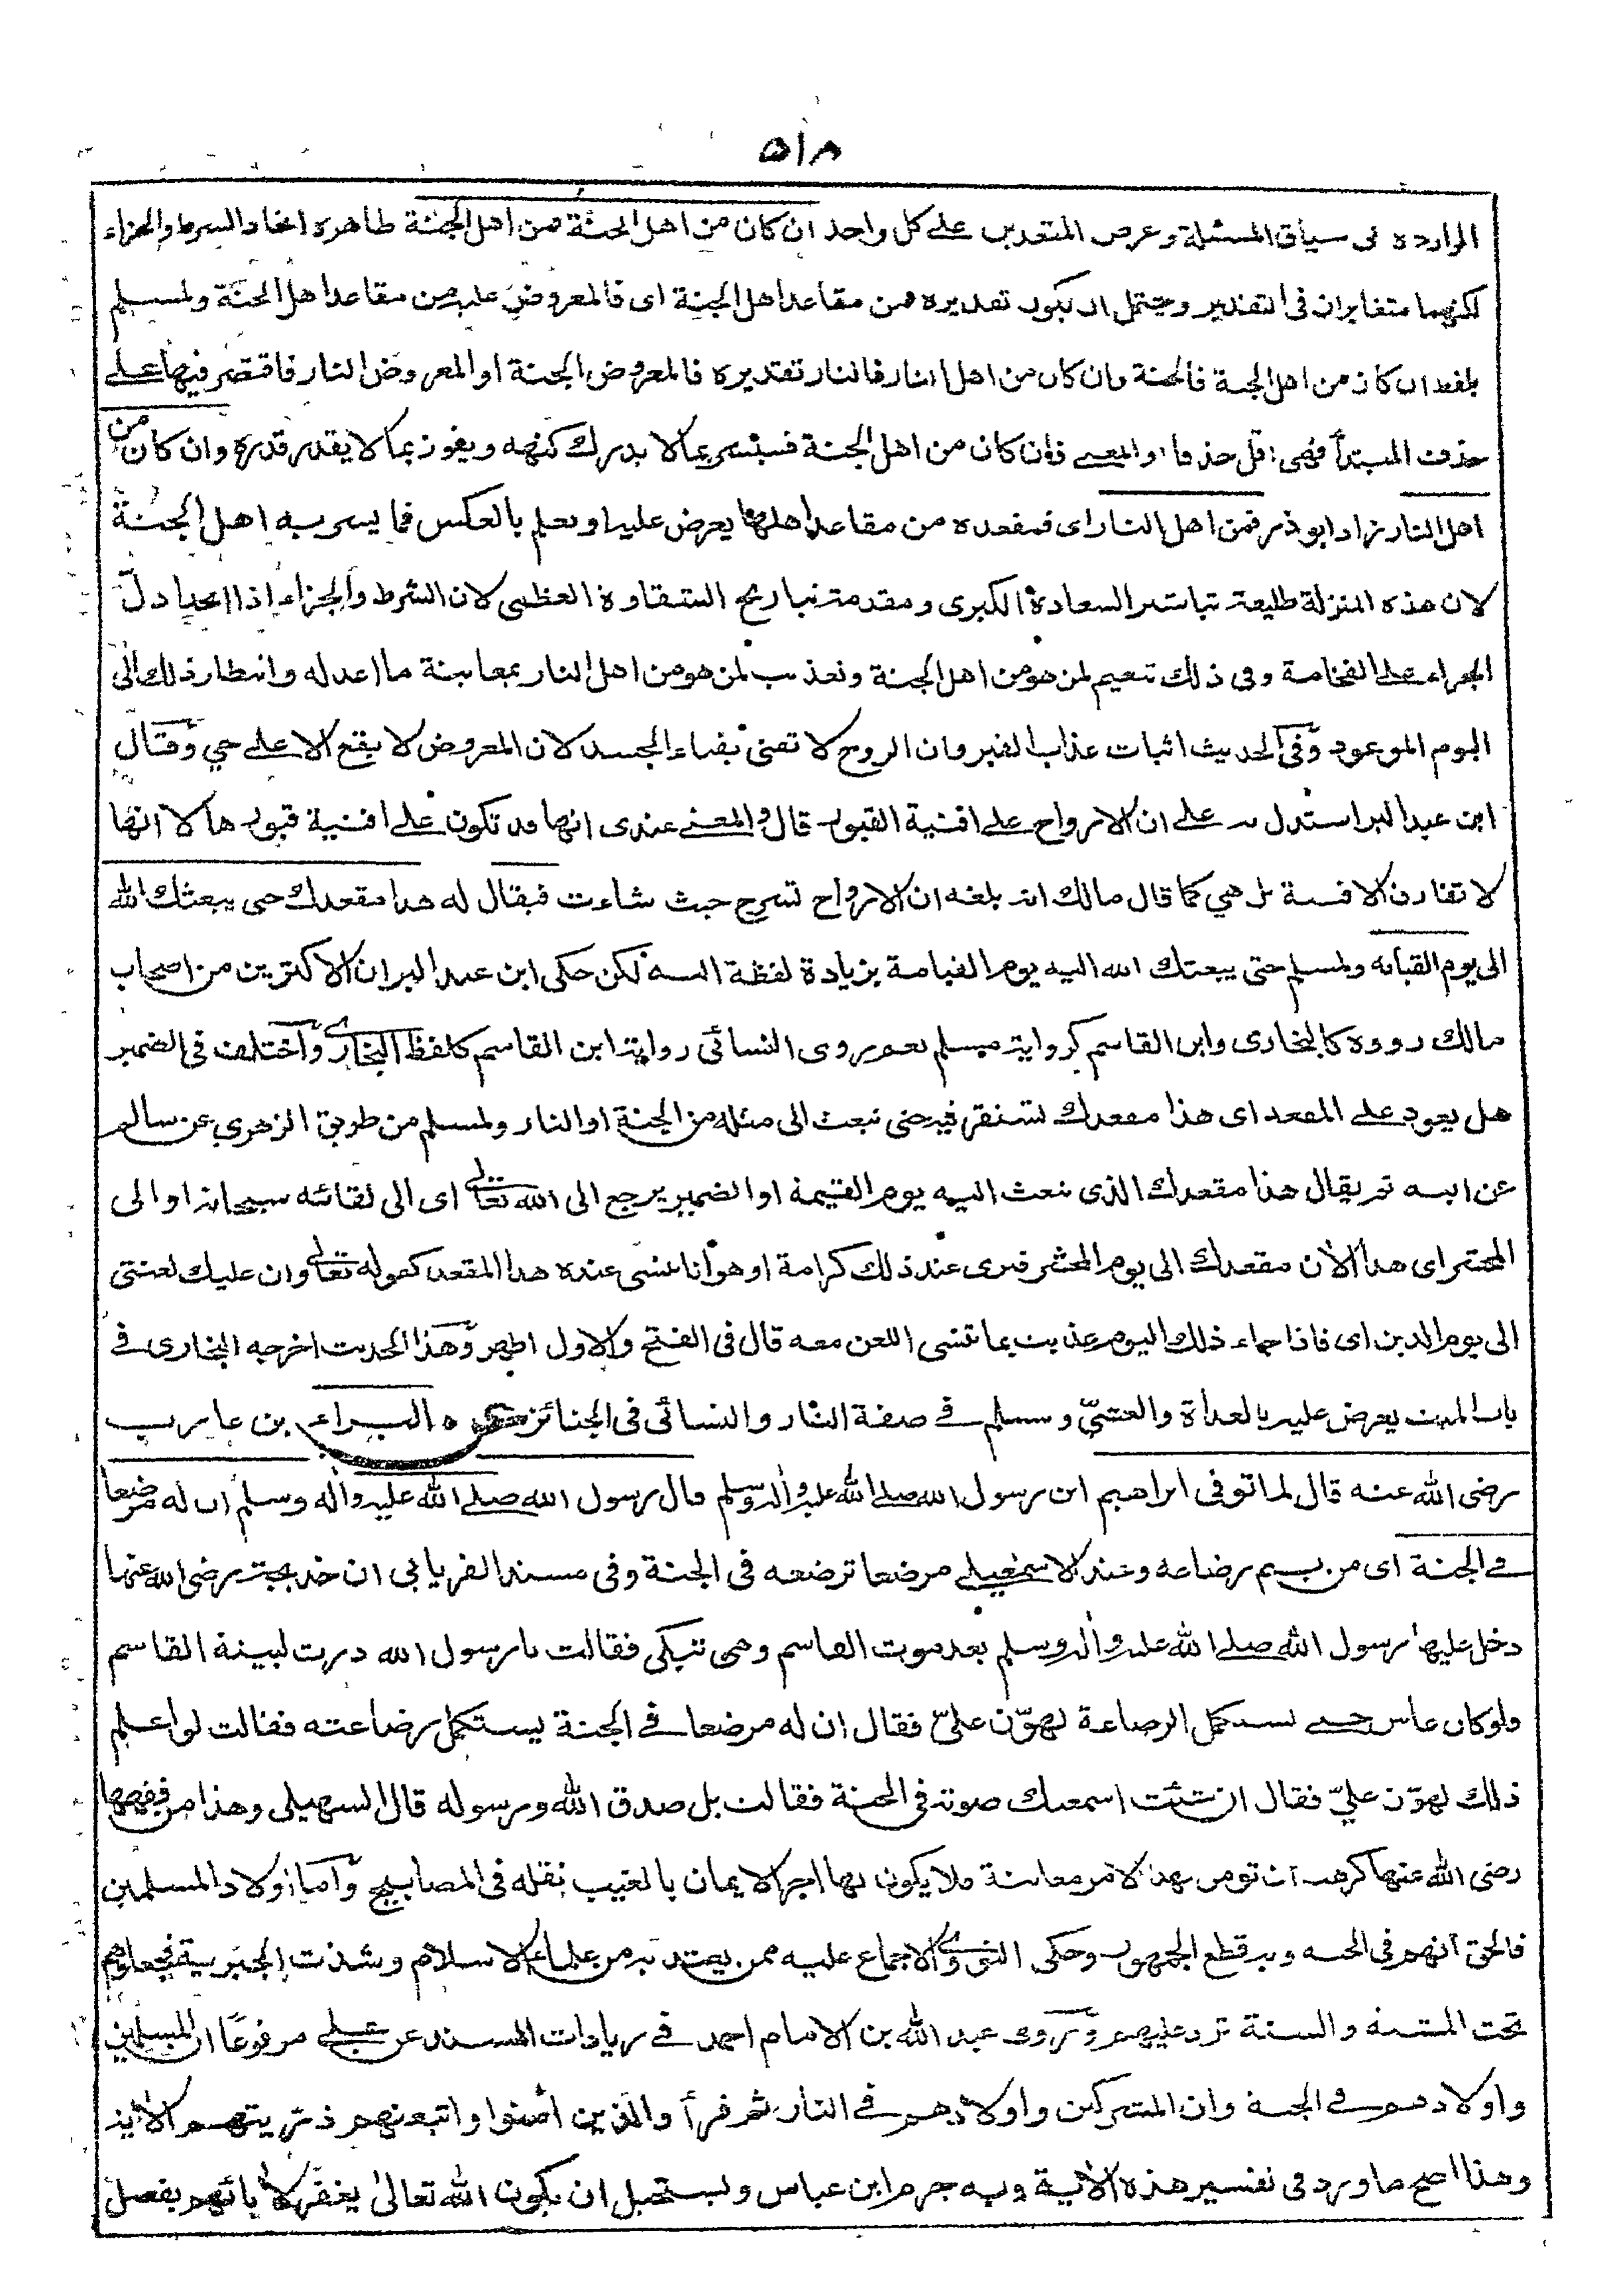 ٥١٨
الواردة فى سياق المسئلة وعرض المقعدين على كل واحد ان كان من اهل الجنة فمن اهل الجنة ظاهره اتحاد الشرط والجزاء
لكنهما متغايران فى التقدير ويحتمل ان يكون تقديره فمن مقاعد اهل الجنة اى فالمعروض عليه من مقاعد اهل الجنة ولمسلم
بلفظ ان كان من اهل الجنة فالجنة وان كان من اهل النار فالنار تقديره فالمعروض الجنة او المعروض النار فاقتصر فيها على
حذف المبتدأ فهى اقل حذفا او المعنى فان كان من اهل الجنة فسيبشر بما لا يدرك كنهه ويفوز بما لا يقدر قدره وان كان من
اهل النار زاد ابو ذر فمن اهل النار اى فمقعده من مقاعد اهلها يعرض عليه او يعلم بالعكس فما يسر به اهل الجنة
لان هذه المنزلة طليعة تباشير السعادة الكبرى ومقدمة تباريح الشقاوة العظمى لان الشرط والجزاء اذا اتحدا دل
الجزاء على الفخامة وفى ذلك تنعيم لمن هو من اهل الجنة وتعذيب لمن هو من اهل النار بمعاينة ما اعد له وانتظار ذلك الى
اليوم الموعود وفى الحديث اثبات عذاب القبر وان الروح لا تفنى بفناء الجسد لان المعروض لا يقع الا على حي وقال
ابن عبد البر استدل به على ان الارواح على افنية القبور قال والمعنى عندى انها قد تكون على افنية قبورها لا انها
لا تفارق الافنية بل هي كما قال مالك انه بلغه ان الارواح تسرح حيث شاءت فيقال له هذا مقعدك حتى يبعثك الله
الى يوم القيامة ولمسلم حتى يبعثك الله اليه يوم القيامة بزيادة لفظة اليه لكن حكى ابن عبد البر ان الاكثرين من اصحاب
مالك رووه كالبخارى وابن القاسم كرواية مسلم نعم روى النسائى رواية ابن القاسم كلفظ البخارى واختلف فى الضمير
هل يعود على المقعد اى هذا مقعدك تستقر فيه حتى تبعث الى مثله من الجنة او النار ولمسلم من طريق الزهري عن سالم
عن ابيه ثم يقال هذا مقعدك الذى تبعث اليه يوم القيمة او الضمير يرجع الى الله تعالى اى الى لقائه سبحانه او الى
المحشر اى هذا الآن مقعدك الى يوم المحشر فترى عند ذلك كرامة او هوانا تنسى عنده هذا المقعد كقوله تعالى وان عليك لعنتى
الى يوم الدين اى فاذا جاء ذلك اليوم عذبت بما تنسى اللعن معه قال فى الفتح والاول اظهر وهذا الحديث اخرجه البخارى فى
باب الميت يعرض عليه بالغداة والعشيّ ومسلم فى صفة النار والنسائى فى الجنائز البراء بن عازب
رضى الله عنه قال لما توفى ابراهيم ابن رسول الله صلى الله عليه واله وسلم قال رسول الله صلى الله عليه واله وسلم ان له مرضعا
فى الجنة اى من يتم رضاعه وعند الاسمعيلى مرضعا ترضعه فى الجنة وفى مسند الفريابى ان خديجة رضى الله عنها
دخل عليها رسول الله صلى الله عليه واله وسلم بعد موت القاسم وهى تبكى فقالت يا رسول الله درت لبينة القاسم
ولو كان عاش حتى يستكمل الرضاعة لهوّن عليّ فقال ان له مرضعا فى الجنة يستكمل رضاعته فقالت لو اعلم
ذلك لهوّن عليّ فقال ان شئت اسمعك صوته فى الجنة فقالت بل صدق الله ورسوله قال السهيلى وهذا من فقهها
رضى الله عنها كرهت ان تومن بهذا الامر معاينة فلا يكون لها اجر الايمان بالغيب نقله فى المصابيح واما اولاد المسلمين
فالحق انهم فى الجنة وبه قطع الجمهور وحكى النووى الاجماع عليه ممن يعتد به من علماء الاسلام وشذت الجبرية فجعلوهم
تحت المشية والسنة ترد عليهم وروى عبد الله بن الامام احمد فى زيادات المسند عن على مرفوعا ان المسلمين
واولادهم فى الجنة وان المشركين واولادهم فى النار ثم قرأ والذين امنوا واتبعتهم ذريتهم الآية
وهذا اصح ما ورد فى تفسير هذه الآية وبه جزم ابن عباس ويستحيل ان يكون الله تعالى يغفر لآبائهم بفضل